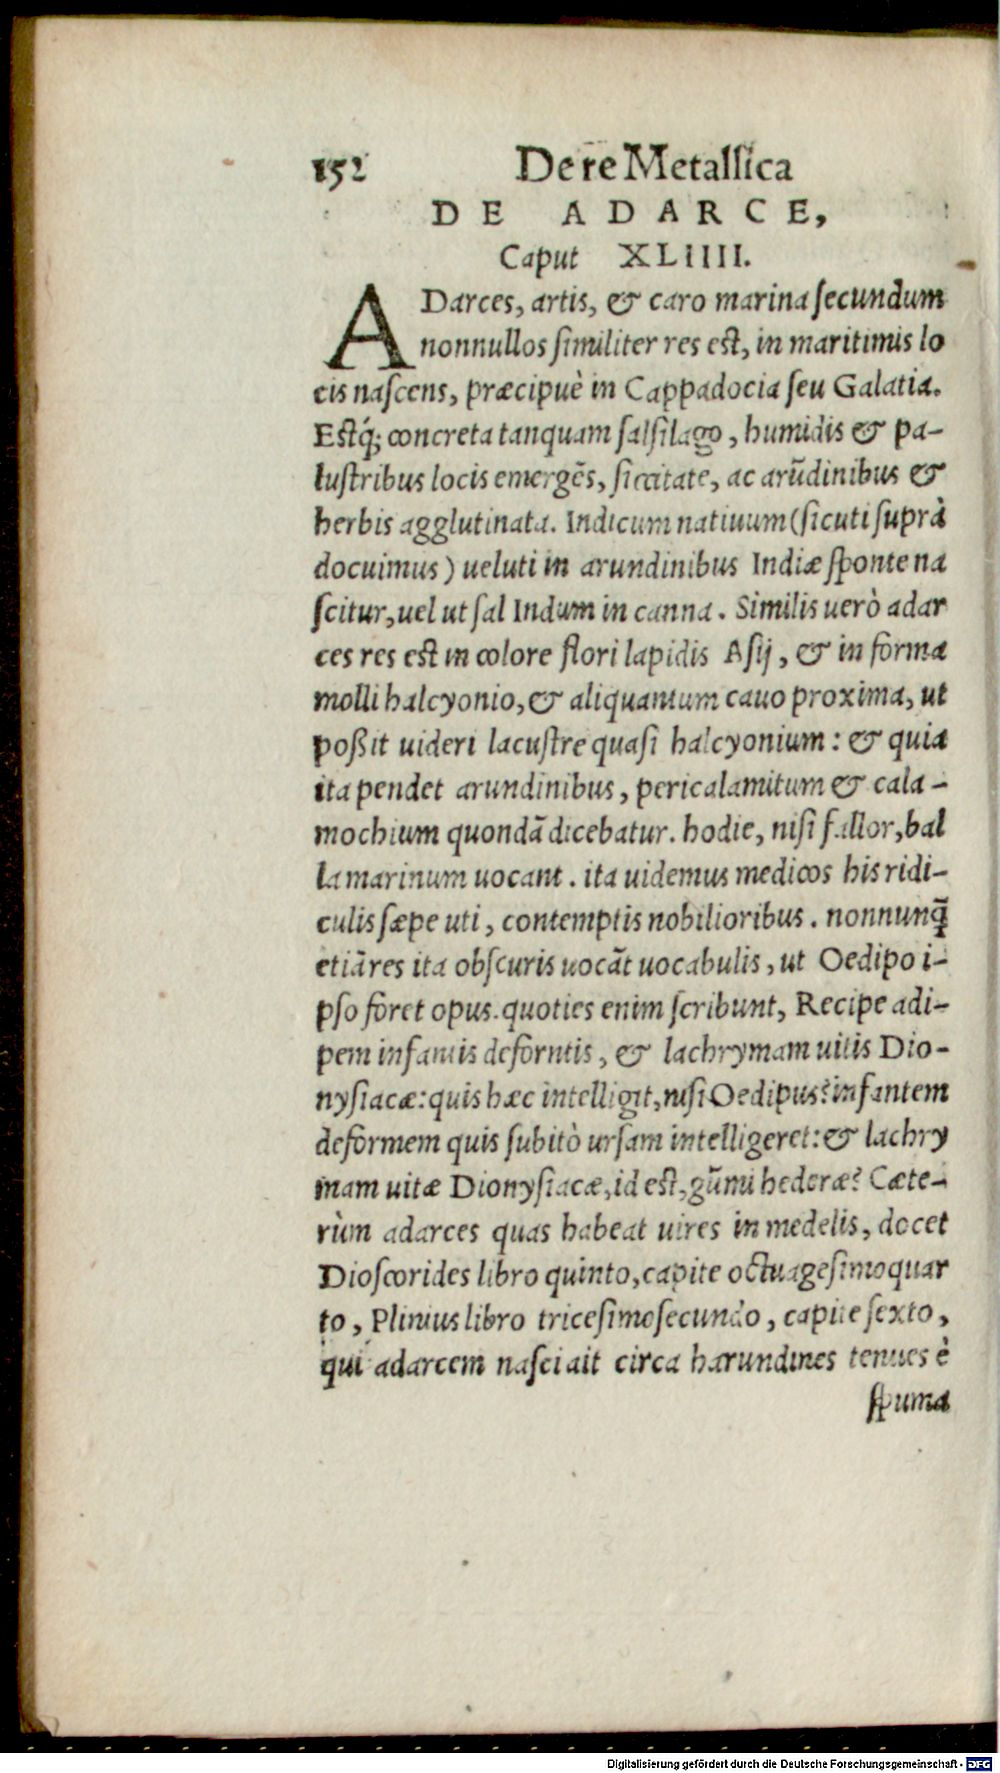 152 De re Metallica
DE ADARCE,
Caput XLIIII.
ADarces, artis, & caro marina secundum
nonnullos similiter res est, in maritimis lo
cis nascens, præcipuè in Cappadocia seu Galatia.
Estq́; concreta tanquam salsilago, humidis & pa-
lustribus locis emergẽs, siccitate, ac arũdinibus &
herbis agglutinata. Indicum natiuum (sicuti suprà
docuimus) ueluti in arundinibus Indiæ sponte na
scitur, uel ut sal Indum in canna. Similis uerò adar
ces res est in colore flori lapidis Asij, & in forma
molli halcyonio, & aliquantum cauo proxima, ut
poßit uideri lacustre quasi halcyonium: & quia
ita pendet arundinibus, pericalamitum & cala-
mochium quondã dicebatur. hodie, nisi fallor, bal
la marinum uocant. ita uidemus medicos his ridi-
culis sæpe uti, contemptis nobilioribus. nonnunq̃
etiã res ita obscuris uocãt uocabulis, ut Oedipo i-
pso foret opus. quoties enim scribunt, Recipe adi-
pem infantis deformis, & lachrymam uitis Dio-
nysiacæ: quis hæc intelligit, nisi Oedipus? infantem
deformem quis subitò ursam intelligeret: & lachry
mam uitæ Dionysiacæ, id est, gũmi hederæ? Cæte-
rùm adarces quas habeat uires in medelis, docet
Dioscorides libro quinto, capite octuagesimoquar
to, Plinius libro tricesimosecundo, capite sexto,
qui adarcem nasci ait circa harundines tenues è
spuma
Digitalisierung gefördert durch die Deutsche Forschungsgemeinschaft - DFG